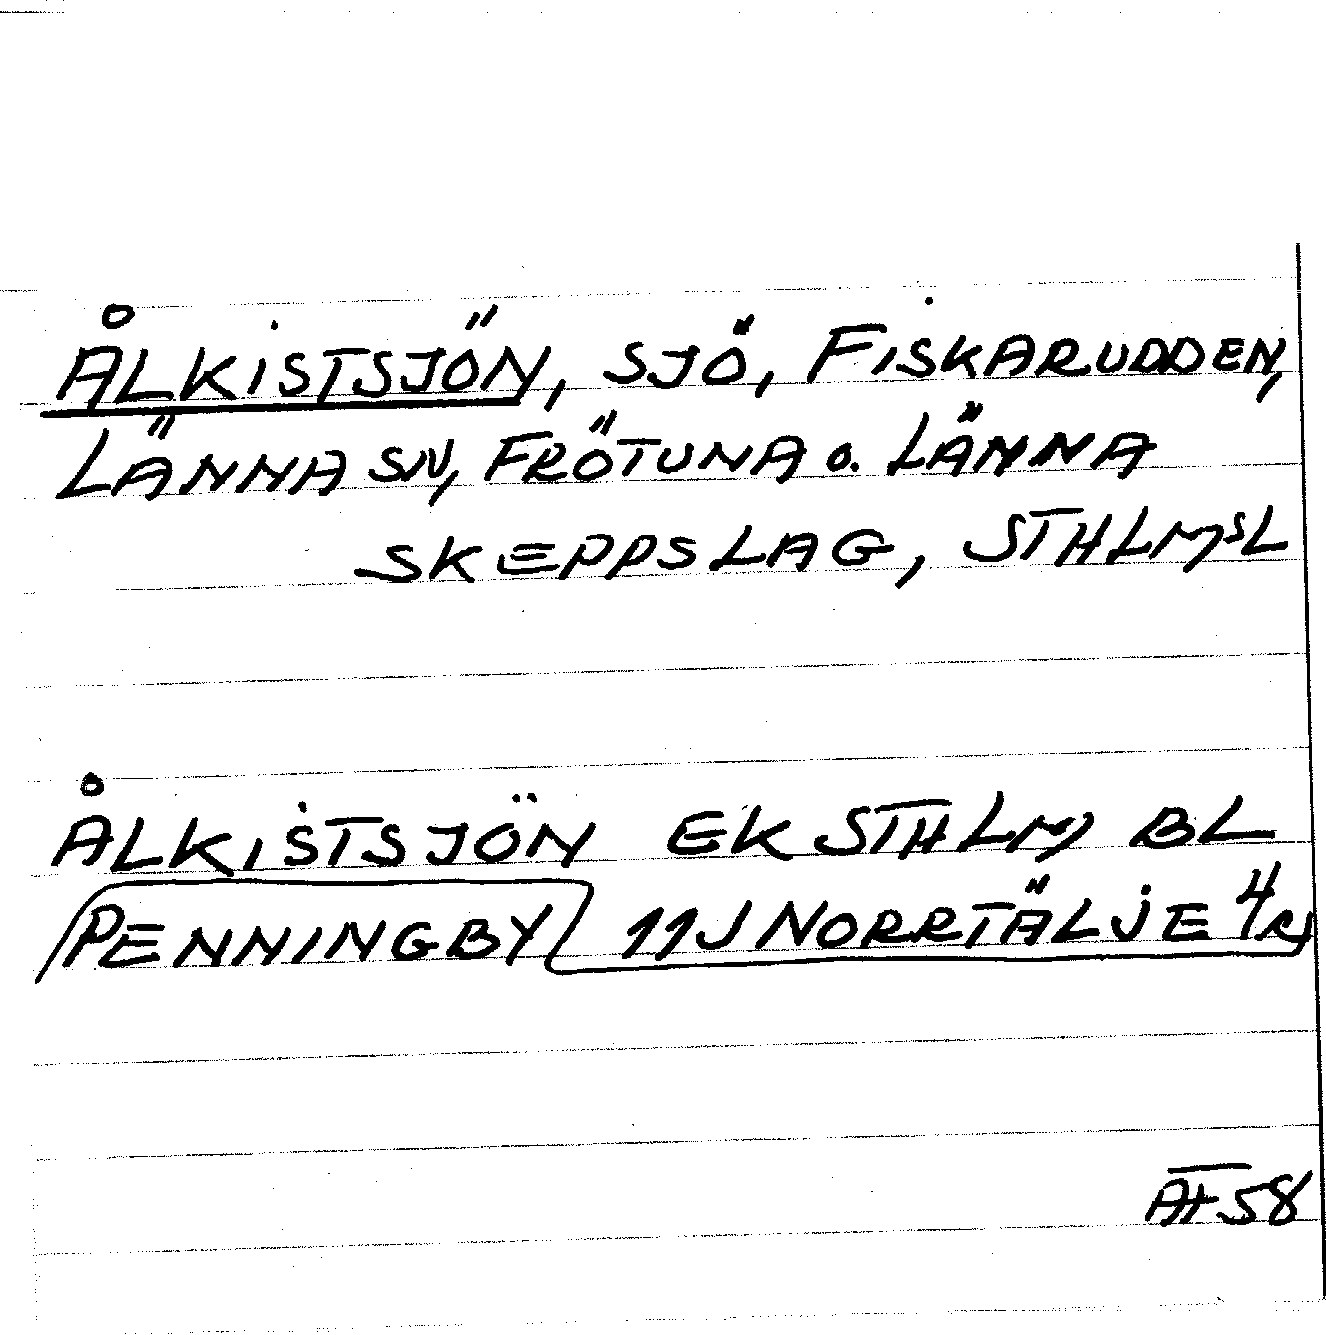 ÅLKISTSJÖN, SJÖ, FISKARUDDEN,
LÄNNA SN, FRÖTUNA O. LÄNNA
SKEPPSLAG, STHLMSL
ÅLKISTSJÖN EK STHLM BL
PENNINGBY 11J NORRTÄLJE
AF 58